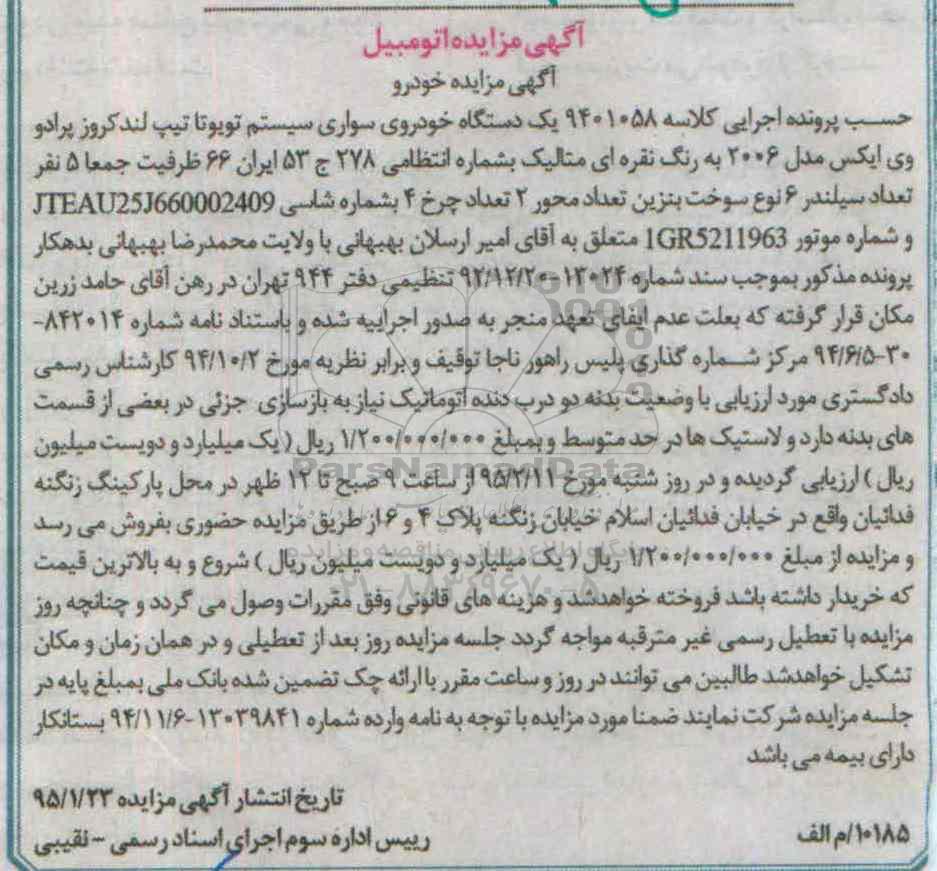 آگهی مزایده اتومبیل
آگهی مزایده خودرو
حسب پرونده اجرایی کلاسه ۹۴۰۱۰۵۸ یک دستگاه خودروی سواری سیستم تویوتا تیپ لندکروز پرادو
وی ایکس مدل ۲۰۰۶ به رنگ نقره ای متالیک بشماره انتظامی ۲۷۸ ج ۵۳ ایران ۶۶ ظرفیت جمعا ۵ نفر
تعداد سیلندر ۶ نوع سوخت بنزین تعداد محور ۲ تعداد چرخ ۴ بشماره شاسی JTEAU25J660002409
و شماره موتور 1GR5211963 متعلق به آقای امیر ارسلان بهبهانی با ولایت محمدرضا بهبهانی بدهکار
پرونده مذکور بموجب سند شماره ۱۲۰۲۴-۹۲/۱۲/۲۰ تنظیمی دفتر ۹۴۴ تهران در رهن آقای حامد زرین
مکان قرار گرفته که بعلت عدم ایفای تعهد منجر به صدور اجراییه شده و باستناد نامه شماره ۸۴۲۰۱۴-
۳۰-۹۴/۶/۵ مرکز شماره گذاری پلیس راهور ناجا توقیف و برابر نظریه مورخ ۹۴/۱۰/۲ کارشناس رسمی
دادگستری مورد ارزیابی با وضعیت بدنه دو درب دنده اتوماتیک نیاز به بازسازی جزئی در بعضی از قسمت
های بدنه دارد و لاستیک ها در حد متوسط و بمبلغ ۱/۲۰۰/۰۰۰/۰۰۰ ریال ( یک میلیارد و دویست میلیون
ریال ) ارزیابی گردیده و در روز شنبه مورخ ۹۵/۲/۱۱ از ساعت ۹ صبح تا ۱۲ ظهر در محل پارکینگ زنگنه
فدائیان واقع در خیابان فدائیان اسلام خیابان زنگنه پلاک ۴ و ۶ از طریق مزایده حضوری بفروش می رسد
و مزایده از مبلغ ۱/۲۰۰/۰۰۰/۰۰۰ ریال ( یک میلیارد و دویست میلیون ریال ) شروع و به بالاترین قیمت
که خریدار داشته باشد فروخته خواهدشد و هزینه های قانونی وفق مقررات وصول می گردد و چنانچه روز
مزایده با تعطیل رسمی غیر مترقبه مواجه گردد جلسه مزایده روز بعد از تعطیلی و در همان زمان و مکان
تشکیل خواهدشد طالبین می توانند در روز و ساعت مقرر با ارائه چک تضمین شده بانک ملی بمبلغ پایه در
جلسه مزایده شرکت نمایند ضمنا مورد مزایده با توجه به نامه وارده شماره ۱۳۰۳۹۸۴۱-۹۴/۱۱/۶ بستانکار
دارای بیمه می باشد
تاریخ انتشار آگهی مزایده ۹۵/۱/۲۳
رییس اداره سوم اجرای اسناد رسمی - نقیبی
۱۰۱۸۵/م الف
ParsNamadData